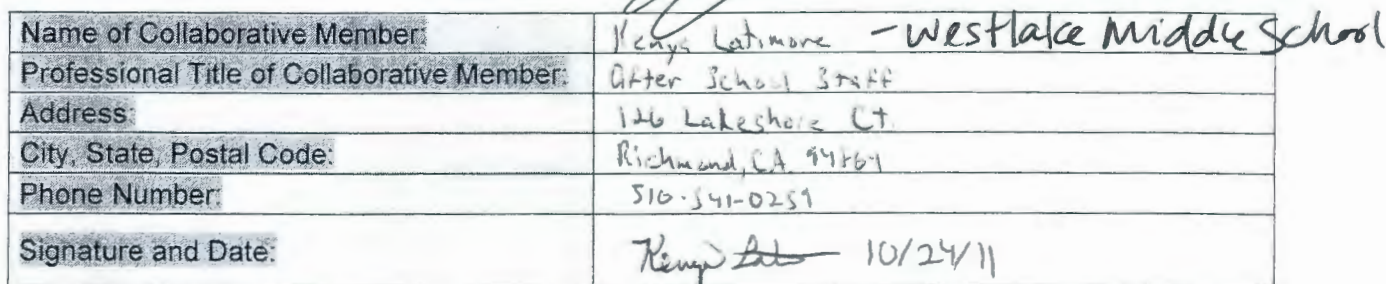 Name of Collaborative Member: Kenya Latimore - Westlake Middle School
Professional Title of Collaborative Member: After School Staff
Address: 126 Lakeshore Ct.
City, State, Postal Code: Richmond, CA
Phone Number: 510-541-0259
Signature and Date: Kenya 10/24/11